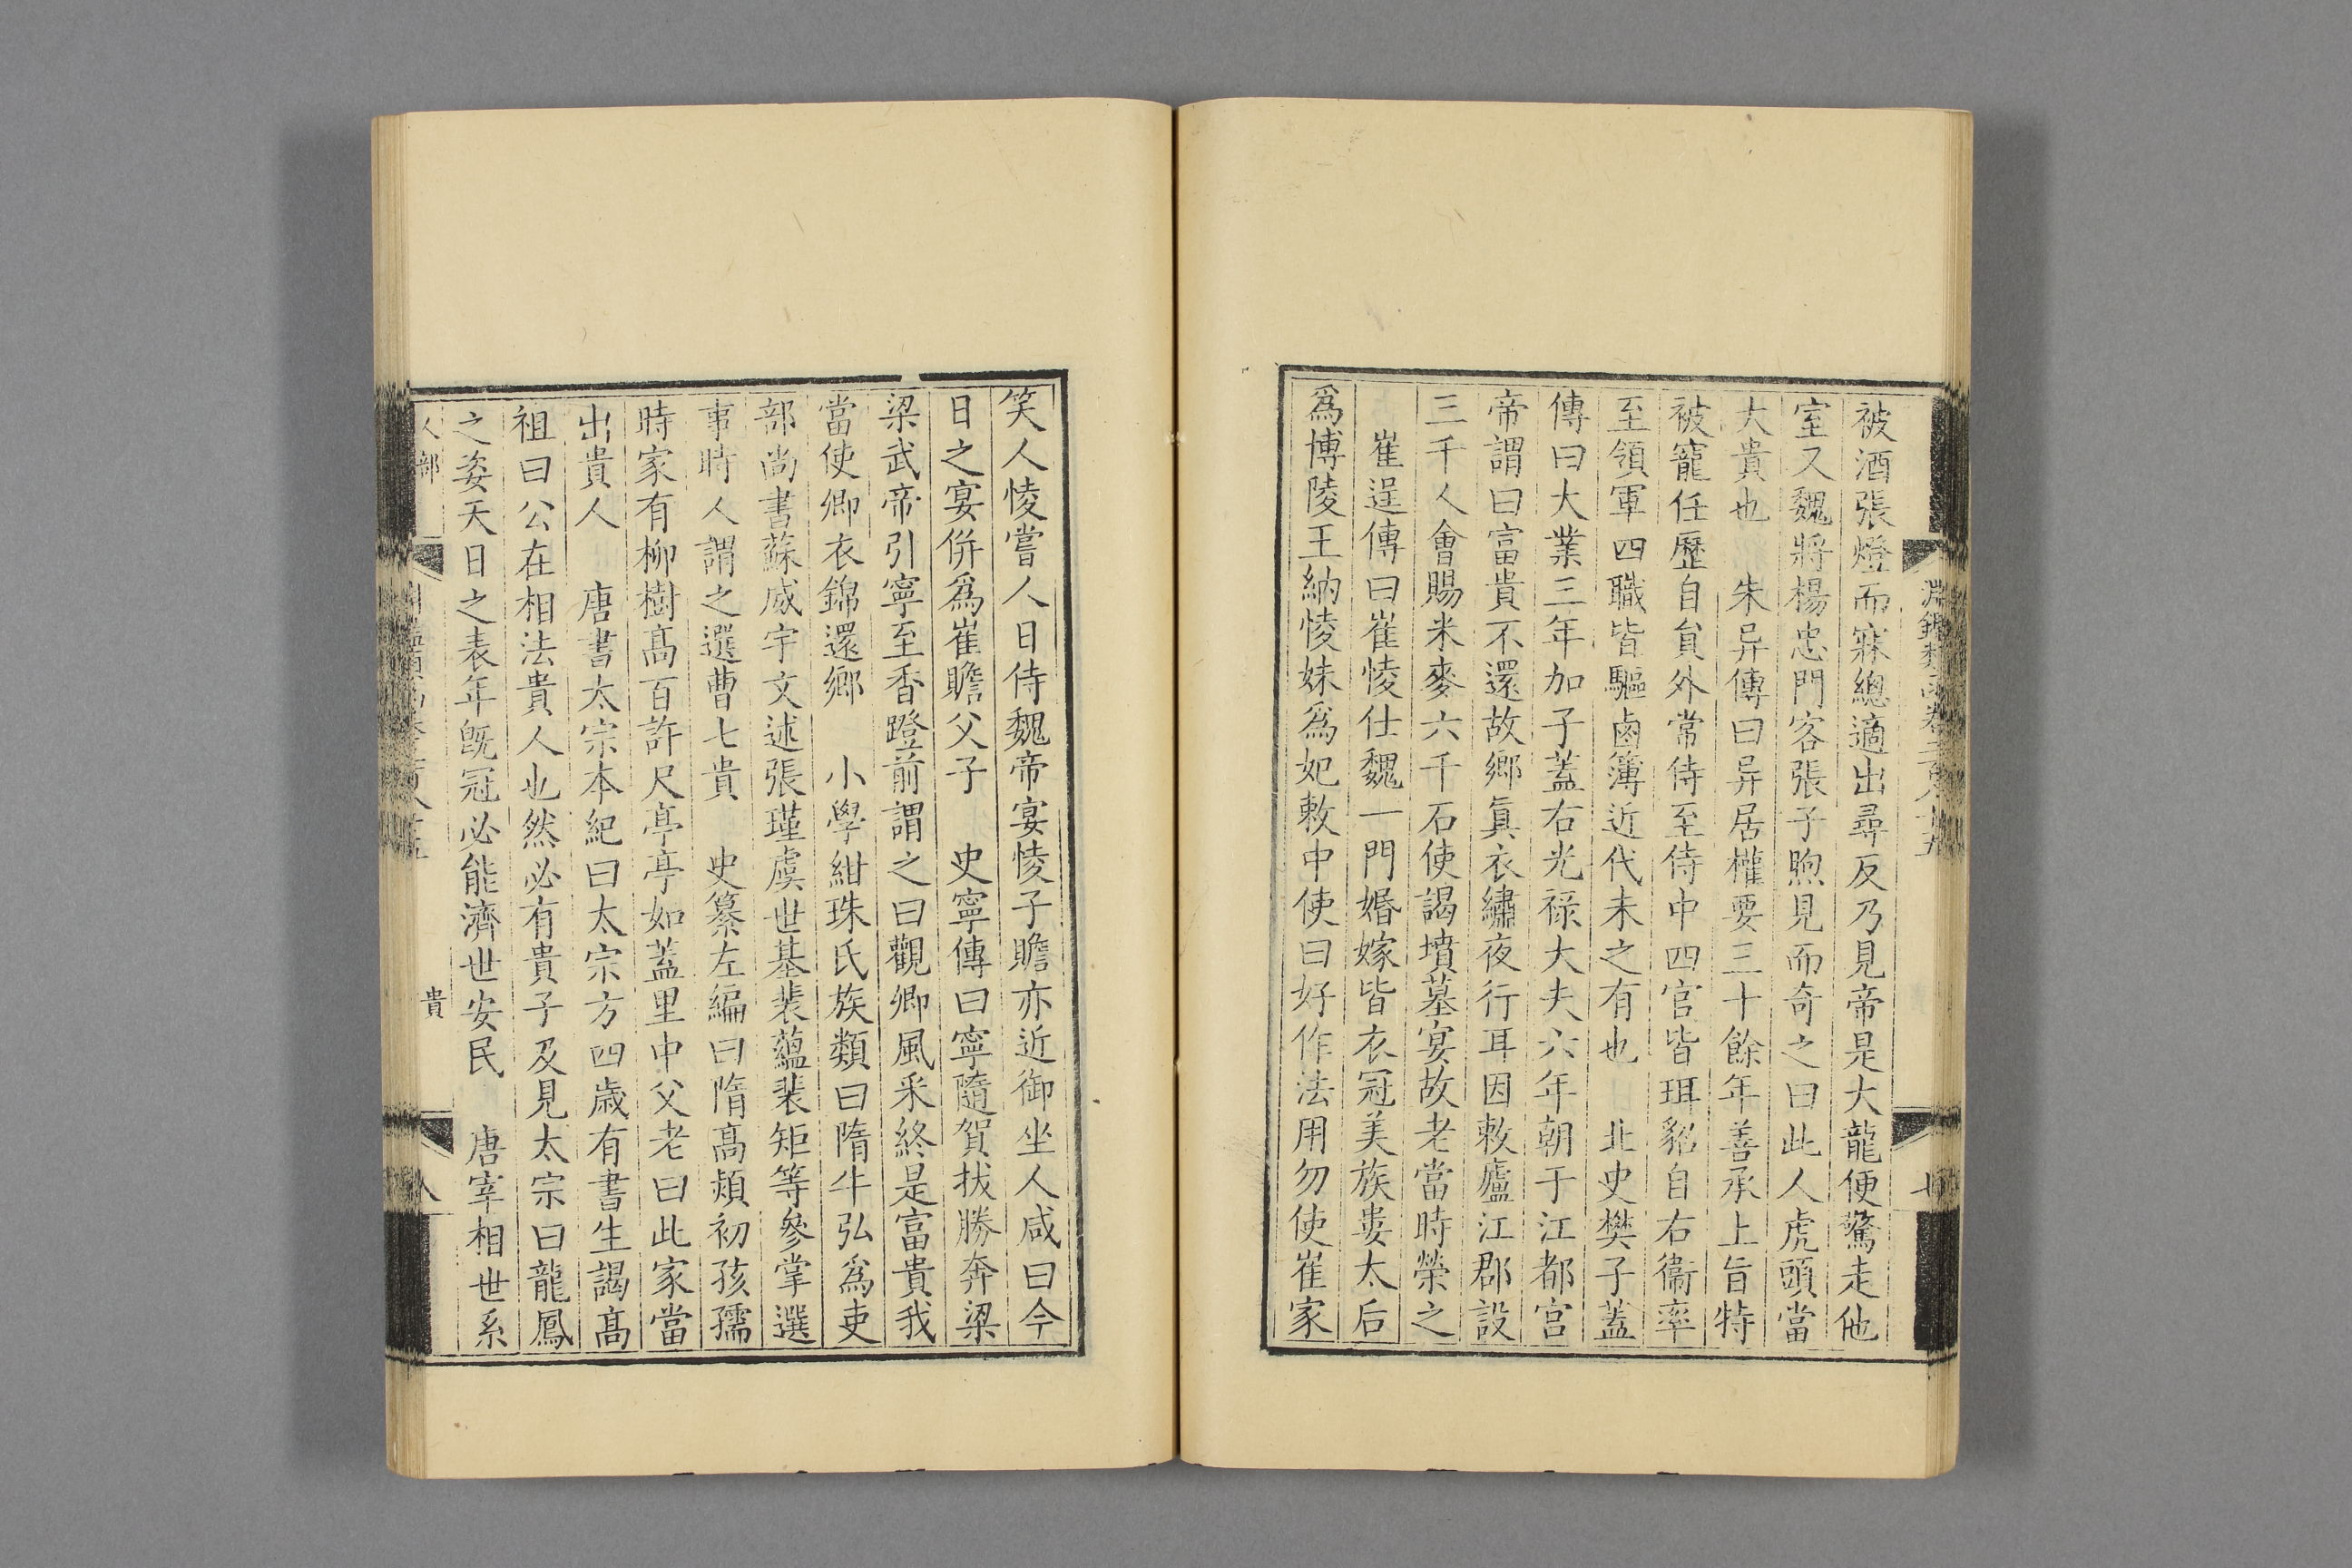 被酒張燈而寐總適出尋反乃見帝是大龍便驚走他
室又魏將楊忠門客張子煦見而奇之曰此人虎頭當
大貴也　朱异傳曰异居權要三十餘年善承上旨特
被寵任歷自貟外常侍至侍中四官皆珥貂自右衞率
至領軍四職皆驅鹵簿近代未之有也　北史樊子蓋
傳曰大業三年加子蓋右光祿大夫六年朝于江都宮
帝謂曰富貴不還故鄉真衣繡夜行耳因敕廬江郡設
三千人會賜米麥六千石使謁墳墓宴故老當時榮之
　崔逞傳曰崔㥄仕魏一門婚嫁皆衣冠美族婁太后
爲博陵王納㥄妹爲妃敕中使曰好作法用勿使崔家
笑人㥄嘗人日侍魏帝宴㥄子贍亦近御坐人咸曰今
日之宴併爲崔贍父子　史寧傳曰寧隨賀拔勝奔梁
梁武帝引寧至香蹬前謂之曰觀卿風采終是富貴我
當使卿衣錦還鄉　小學紺珠氏族類曰隋牛弘爲吏
部尚書蘇威宇文述張瑾虞世基裴蘊裴矩等參掌選
事時人謂之選曹七貴　史纂左編曰隋高熲初孩孺
時家有柳樹高百許尺亭亭如蓋里中父老曰此家當
出貴人　唐書太宗本紀曰太宗方四歲有書生謁高
祖曰公在相法貴人也然必有貴子及見太宗曰龍鳳
之姿天日之表年旣冠必能濟世安民　唐宰相世系
人部
貴
八